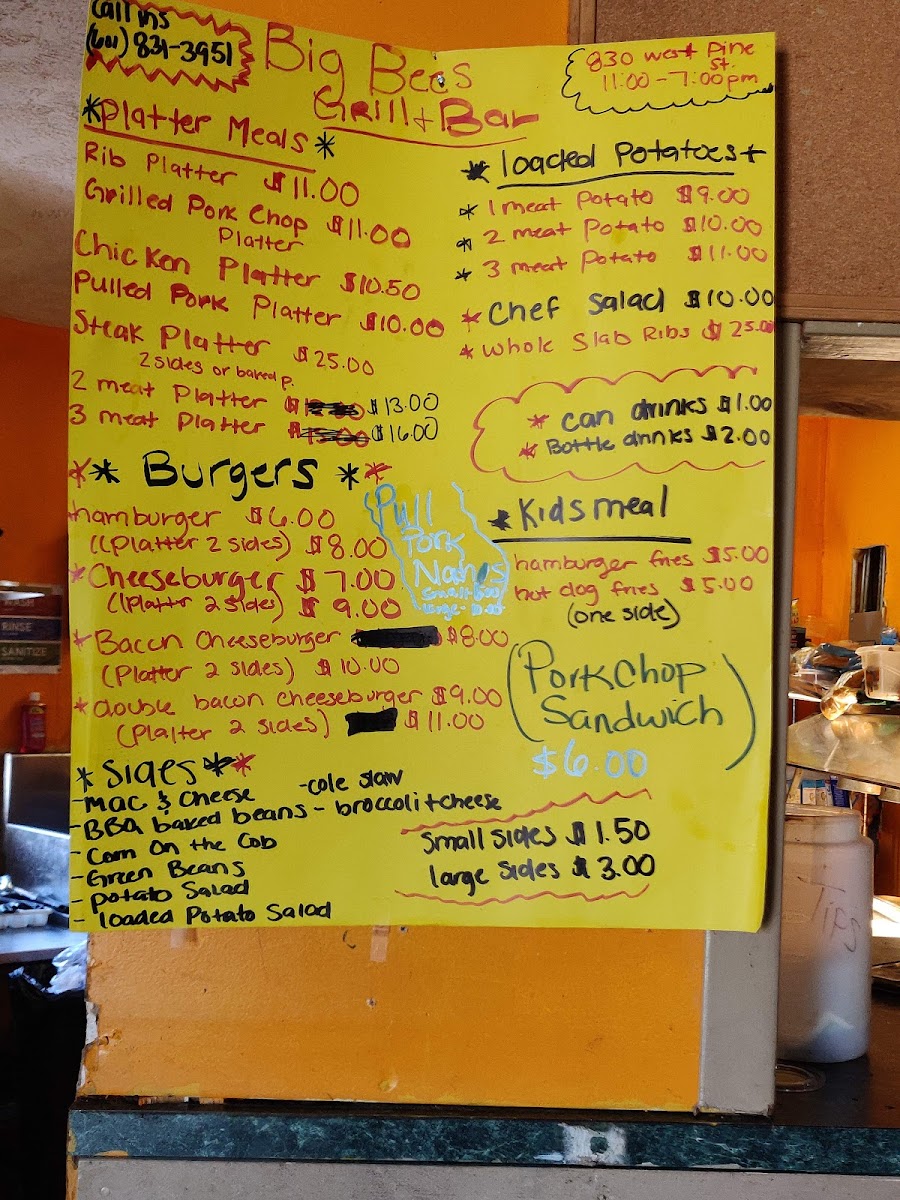 Call ins
(601) 831-3951
Big Bees
Grill + Bar
830 west Pine
St.
11:00-7:00pm
*Platter Meals*
Rib Platter $11.00
Grilled Pork Chop $11.00
Platter
Chicken Platter $10.50
Pulled Pork Platter $10.00
Steak Platter $25.00
2 sides or baked p.
2 meat Platter $13.00
3 meat Platter $16.00
** Burgers **
hamburger $6.00
((Platter 2 sides) $8.00
*Cheeseburger $7.00
((Plattr 2 sides) $9.00
*Bacon Cheeseburger $8.00
(Platter 2 sides) $10.00
*double bacon cheeseburger $9.00
(Platter 2 sides) $11.00
*Sides**
-Mac & Cheese
-cole slaw
-BBQ baked beans - broccoli + cheese
-Corn On the Cob
-Green Beans
-potato Salad
- loaded Potato Salad
* loaded Potatoes +
* 1 meat Potato $9.00
* 2 meat Potato $10.00
* 3 meat Potato $11.00
* Chef Salad $10.00
* Whole Slab Ribs $25.00
* can drinks $1.00
* Bottle drinks $2.00
*Kids meal
hamburger fries $5.00
hot dog fries $5.00
(one side)
Pull
Pork
Nachos
(Pork Chop
Sandwich)
$6.00
small sides $1.50
large sides $3.00
WASH
RINSE
SANITIZE
TIPS